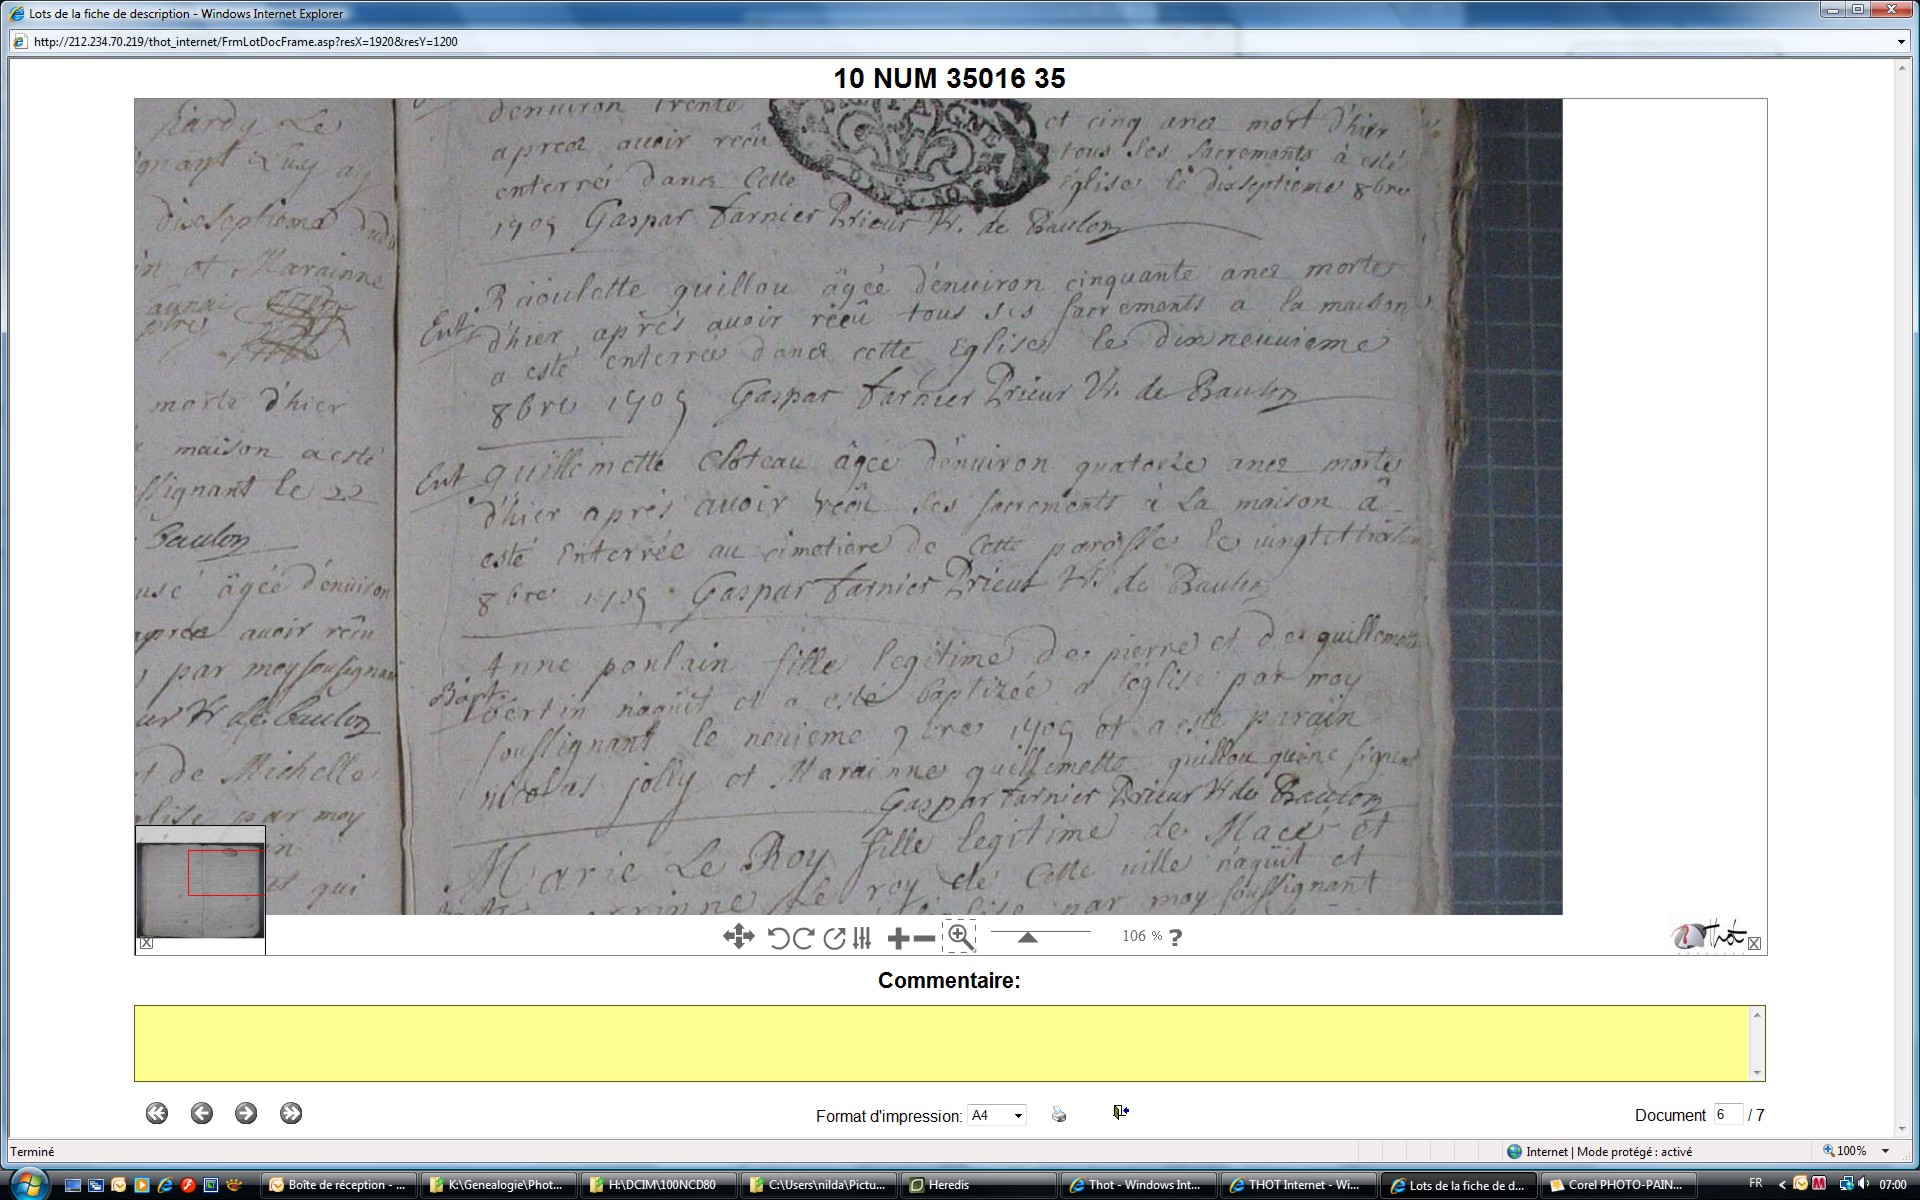 Lots de la fiche de description - Windows Internet Explorer
http://212.234.70.219/thot_internet/FrmLotDocFrame.asp?resX=1920&resY=1200
10 NUM 35016 35
hardy Le
dixseptieme
et Marainne
morte d'hier
maison a esté
ssignant le 22
Baulon
âgée d'énuiron
apres auoir reçu
par moy soussignant
Vr de Baulon
et de Michelle
par moy
qui
d'enuiron trente et cinq ans mort d'hier
apres auoir reçu tous ses sacrements à esté
enterré dans Cette Eglise le dixseptieme 8bre
1705 Gaspar farnier Prieur Vr. de Baulon
Raoulette guillou âgéé d'énuiron cinquante ans morte
Ent d'hier aprés auoir réçû tous ses sacrements a la maison
a esté enterreé dans cette Eglise le dixneuuieme
8bre 1705 Gaspar farnier Prieur Vr. de Baulon
Ent guillemette Cloteau âgéé d'énuiron quatorze ans morte
d'hier aprés auoir reçu ses sacrements à la maison â
esté Enterréé au cimetiere de cette paroisse le vingt et troisie
8bre 1705 Gaspar farnier Prieur Vr. de Baulon
Anne poulain fille legitime de pierre et de guillemette
Bapt bértin naquit et a esté baptizéé a l'église par moy
soussignant le neuieme 9bre 1705 et a esté parain
nicolas jolly et Marainne guillemette guillou qui ne signent
Gaspar farnier Prieur Vr de Baulon
Marie Le Roy fille legitime de Macé et
le roy de Cette ville naquit et
par moy soussignant
106 % ?
Thot
Commentaire:
Format d'impression: A4
Document 6 / 7
Terminé
Internet | Mode protégé : activé
100%
Boîte de réception - ...
K:\Genealogie\Phot...
H:\DCIM\100NCD80
C:\Users\nilda\Pictu...
Heredis
Thot - Windows Int...
THOT Internet - Wi...
Lots de la fiche de d...
Corel PHOTO-PAIN...
FR
07:00